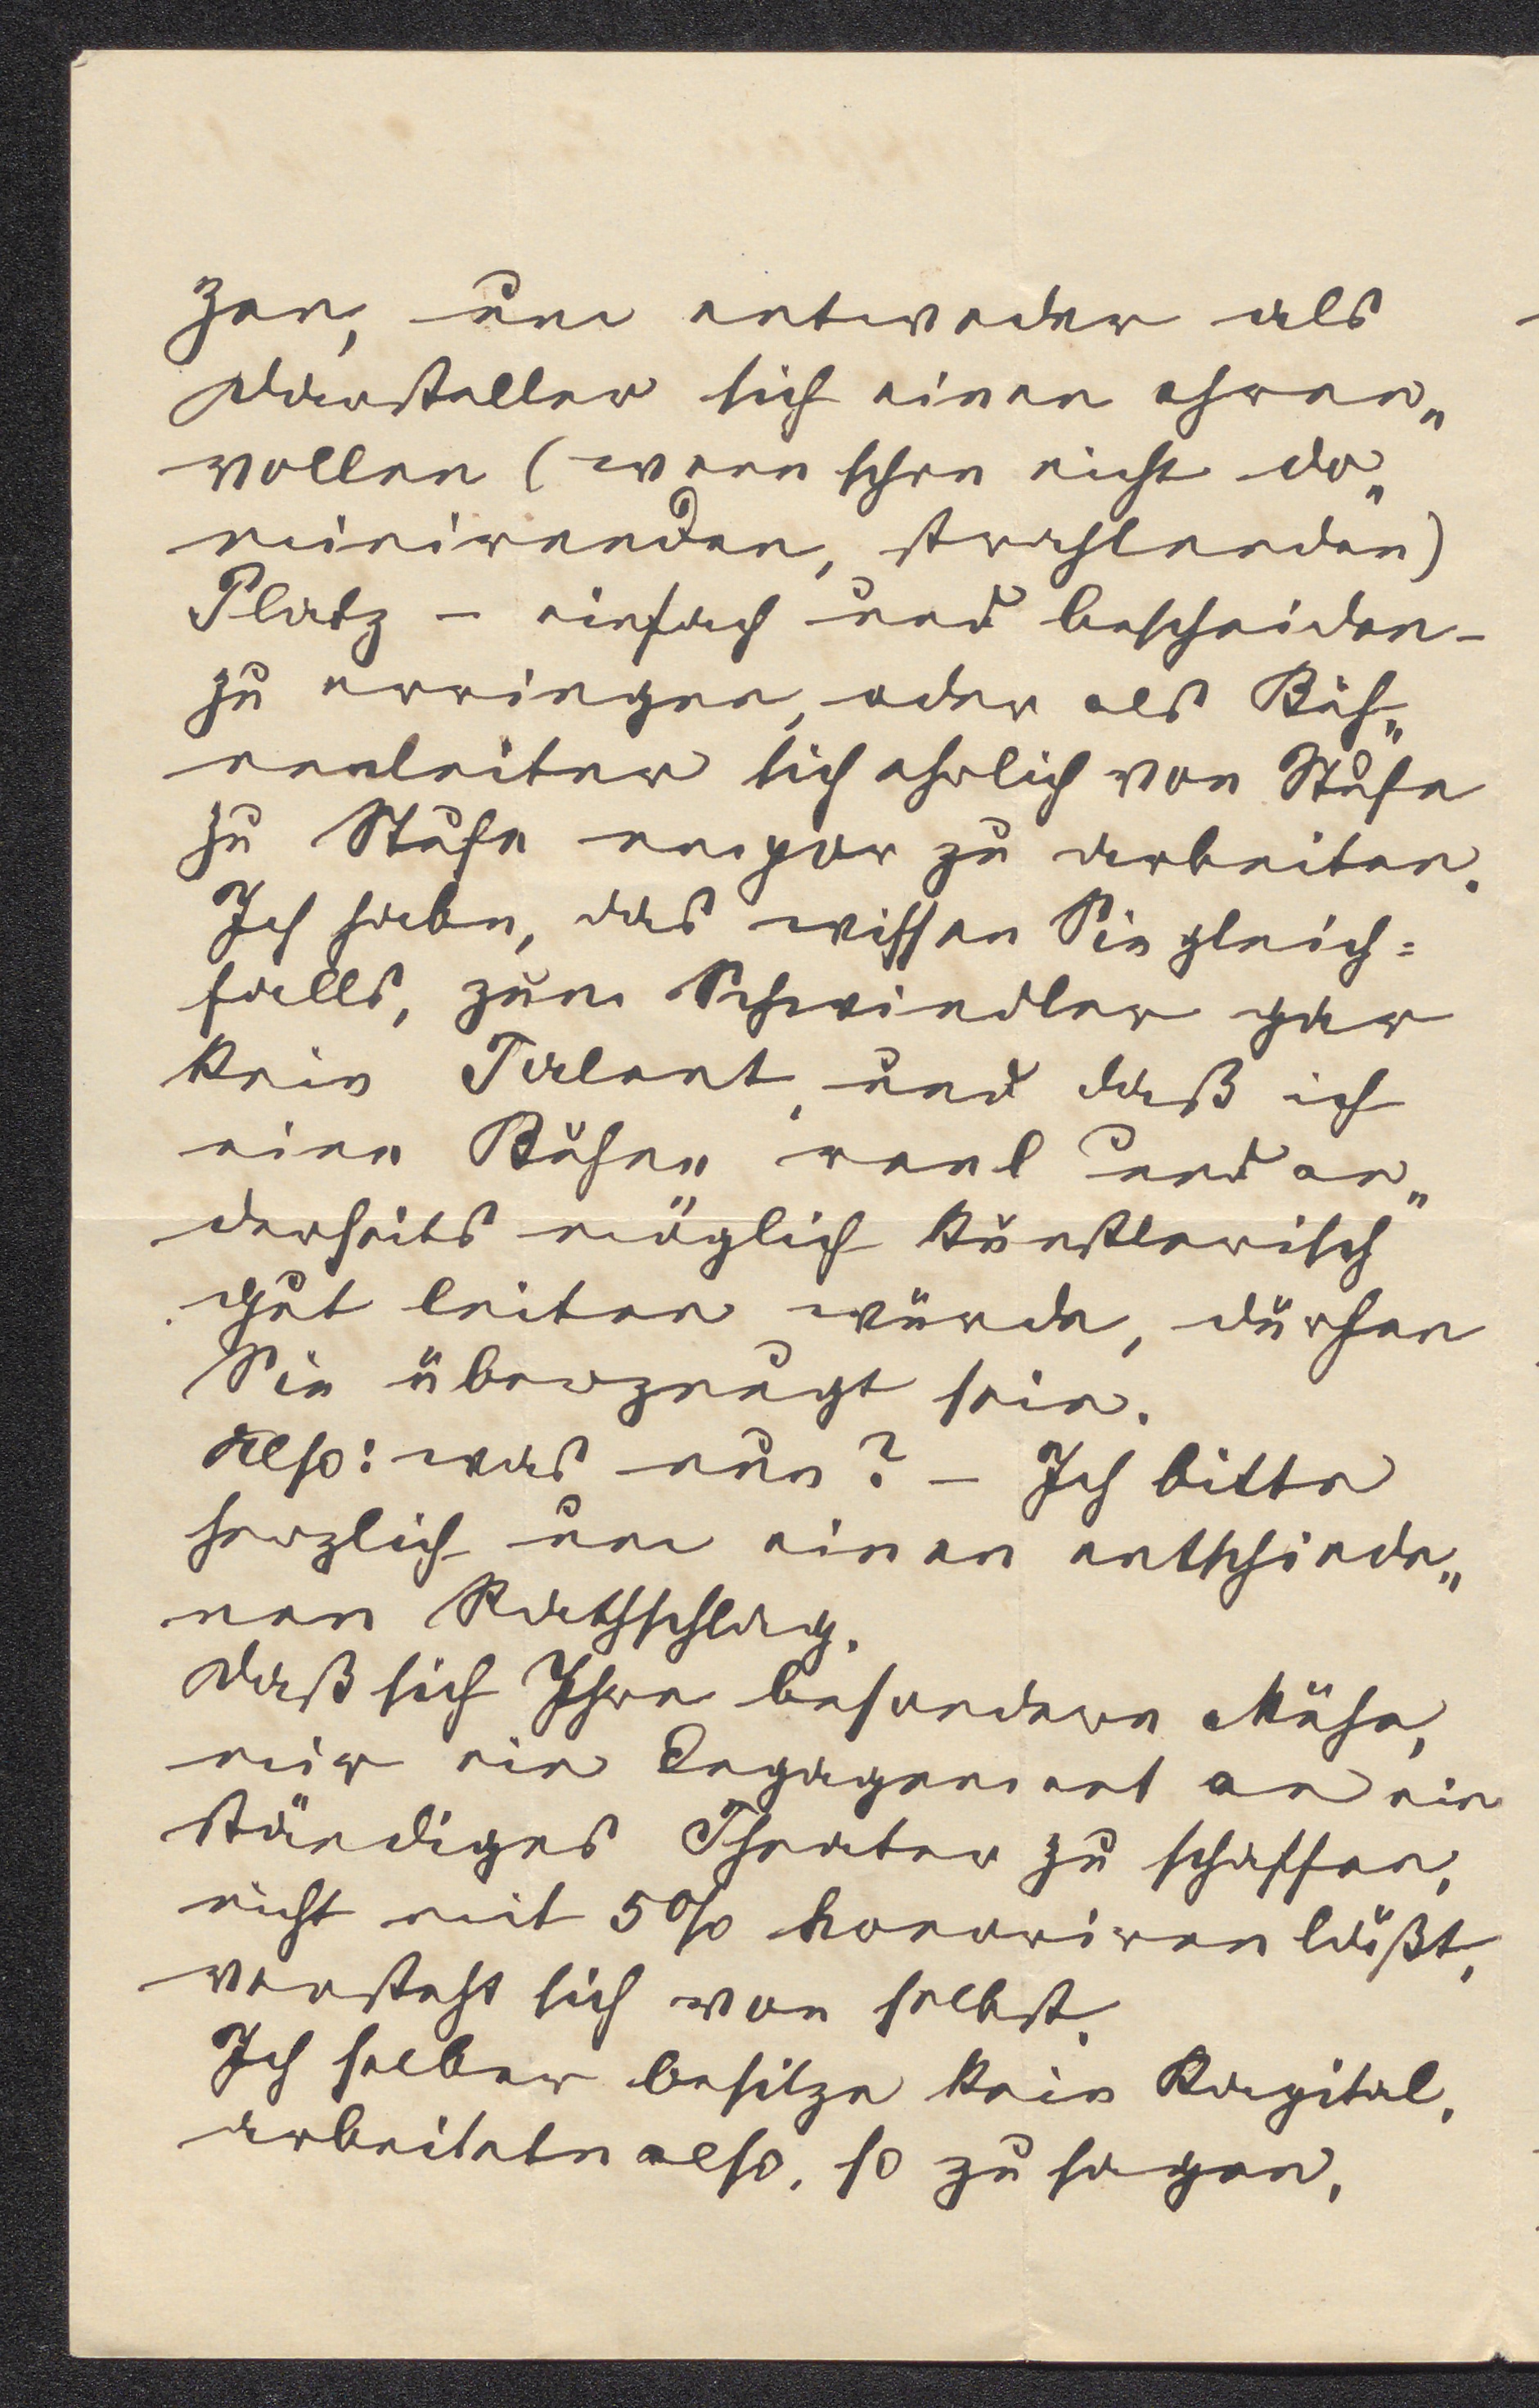 zen, um entweder als
Darsteller sich einen ehren„
vollen (wenn schon nicht do„
minirenden, strahlenden)
Platz – einfach und bescheiden –
zu erringen, oder als Büh„
nenleiter sich ehrlich von Stufe
zu Stufe empor zu arbeiten.
Ich habe, das wissen Sie gleich=
falls, zum Schwindler gar
kein Talent, und daß ich
eine Bühne reel und an„
derseits möglich künstlerisch
gut leiten würde, dürfen
Sie überzeugt sein.
Also: was nun? – Ich bitte
herzlich um einen entschiede„
nen Rathschlag.
Daß sich Ihre besondere Mühe,
mir ein Engagement an ein
ständiges Theater zu schaffen,
nicht mit 5% honoriren läßt,
versteht sich von selbst.
Ich selber besitze kein Kapital,
arbeitete also, so zu sagen,